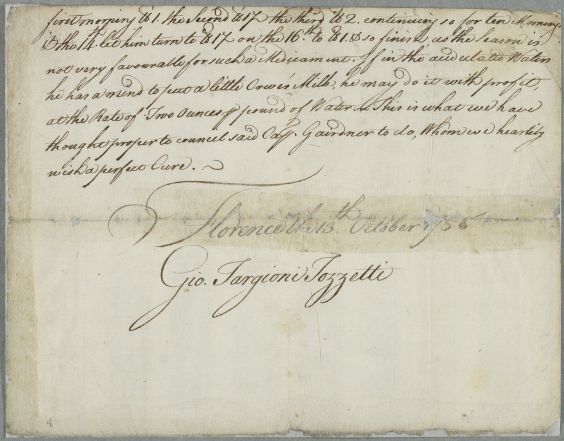 first morning ℔1. the Second ℔1½ the third ℔2. continuing so for ten Mornings
& the 14. let him turn to ℔1½ on the 16th to ℔1. & so finish, as the Season is
not very favourable for such a Medicament. If in the Water
he has a mind to put a little Cow's Milk, he may do it with profit,
at the Rate of Two Ounces pound of Water. This is what we have
thought proper to council said Cap. Gairdner to do, Whom we heartily
wish a perfect Cure.
Florence 13th October
Gio. Targioni Tozzetti